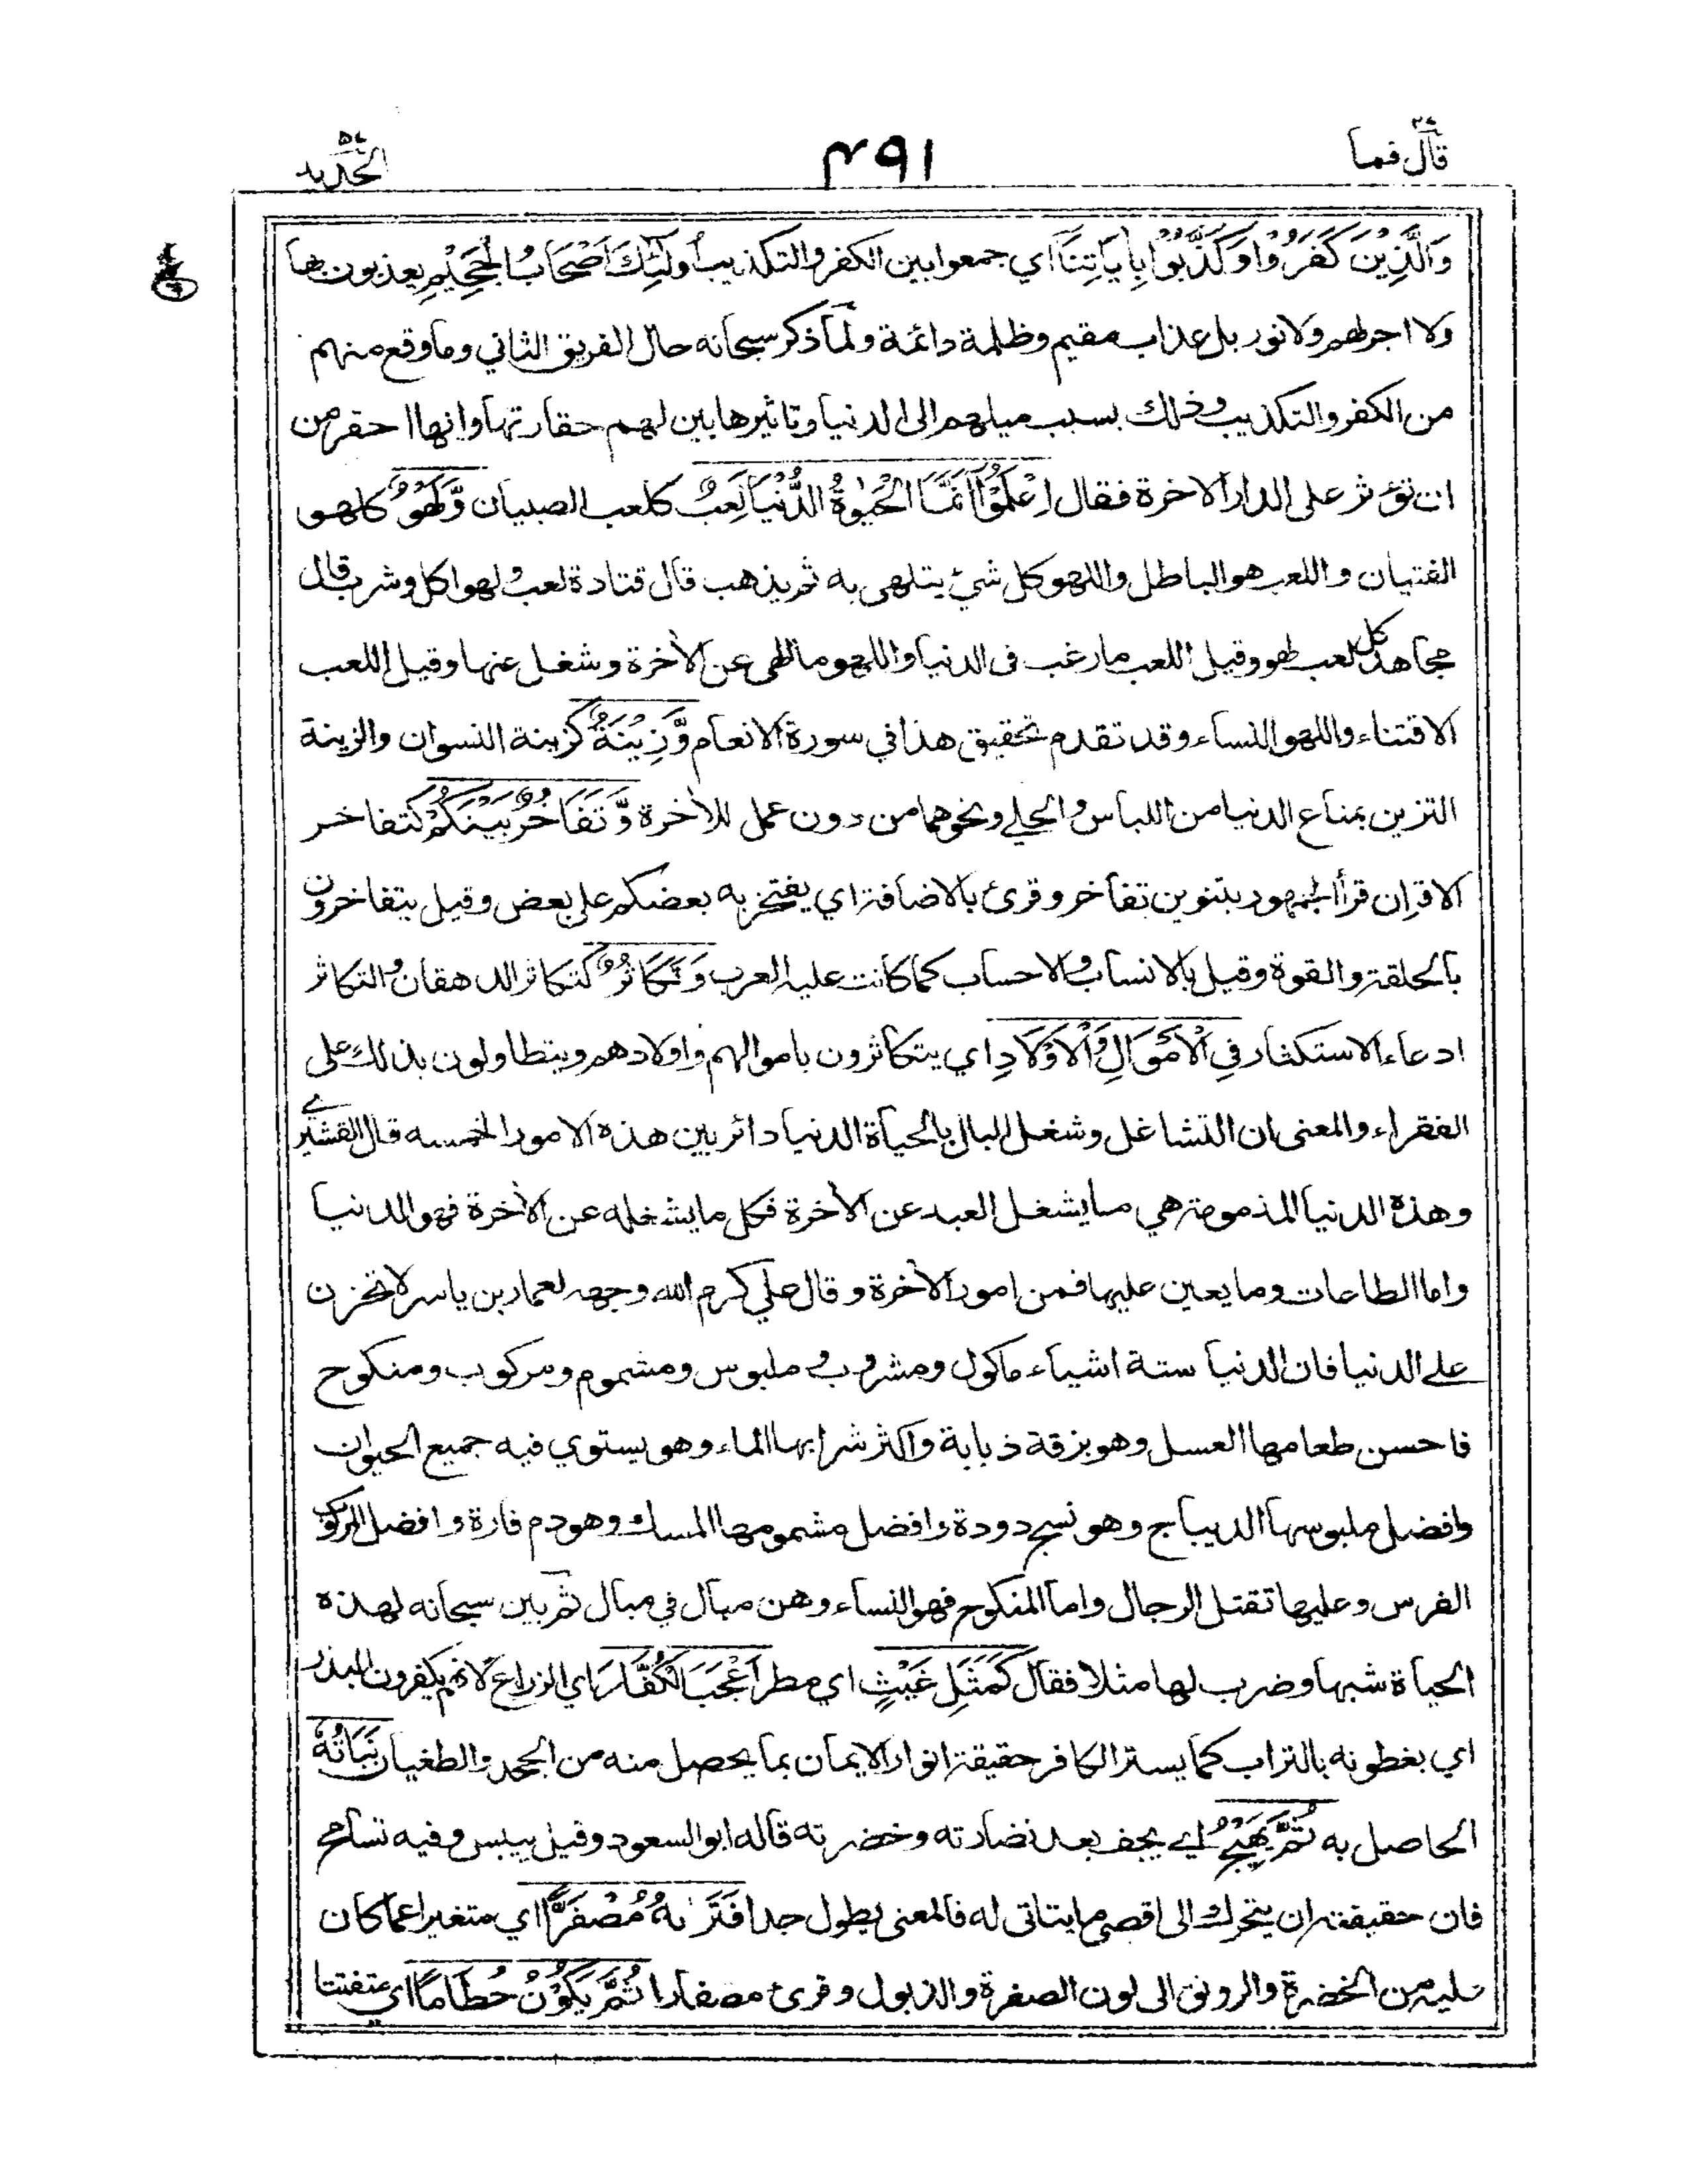 قال فما ٢٧
١٩٤
الحديد ٥٧
وَالَّذِيْنَ كَفَرُوْا وَكَذَّبُوْا بِاٰيَاتِنَا اي جمعوا بين الكفر والتكذيب أُولٰئِكَ أَصْحَابُ الْجَحِيْمِ يعذبون بها
ولا اجر لهم ولا نور بل عذاب مقيم وظلمة دائمة ولما ذكر سبحانه حال الفريق الثاني وما وقع منهم
من الكفر والتكذيب وذلك بسبب ميلهم الى الدنيا وتاثيرها بين لهم حقارتها وانها احقر من
ان تؤثر على الدار الاخرة فقال اِعْلَمُوْٓا اَنَّمَا الْحَيٰوةُ الدُّنْيَا لَعِبٌ كلعب الصبيان وَّلَهْوٌ كلهو
الفتيان واللعب هو الباطل واللهو كل شيء يتلهى به ثم يذهب قال قتادة لعب ولهو اكل وشرب قال
مجاهد كل لعب لهو وقيل اللعب ما رغب فى الدنيا واللهو ما الهى عن الاخرة وشغل عنها وقيل اللعب
الاقتناء واللهو النساء وقد تقدم تحقيق هذا في سورة الانعام وَّزِيْنَةٌ كزينة النسوان والزينة
التزين بمتاع الدنيا من اللباس والحلي ونحوهما من دون عمل للاخرة وَّتَفَاخُرٌ بَيْنَكُمْ كتفاخر
الاقران قرأ الجمهور بتنوين تفاخر وقرئ بالاضافة اي يفتخر به بعضكم على بعض وقيل يتفاخرون
بالخلقة والقوة وقيل بالانساب والاحساب كما كانت عليه العرب وَتَكَاثُرٌ كتكاثر الدهقان والتكاثر
ادعاء الاستكثار فِي الْاَمْوَالِ وَالْاَوْلَادِ اي يتكاثرون باموالهم واولادهم ويتطاولون بذلك على
الفقراء والمعنى ان التشاغل وشغل البال بالحياة الدنيا دائر بين هذه الامور الخمسه قال القشيري
وهذه الدنيا المذمومة هي ما يشغل العبد عن الاخرة فكل ما يشغله عن الاخرة فهو الدنيا
واما الطاعات وما يعين عليها فمن امور الاخرة وقال علي كرم الله وجهه لعمار بن ياسر لا تحزن
على الدنيا فان الدنيا ستة اشياء ماكول ومشروب وملبوس ومشموم ومركوب ومنكوح
فاحسن طعامها العسل وهو بزقة ذبابة واكثر شرابها الماء وهو يستوي فيه جميع الحيوان
وافضل ملبوسها الديباج وهو نسج دودة وافضل مشمومها المسك وهو دم فارة وافضل المركوب
الفرس وعليها تقتل الرجال واما المنكوح فهو النساء وهن مبال في مبال ثم بين سبحانه لهذه
الحياة شبها وضرب لها مثلا فقال كَمَثَلِ غَيْثٍ اي مطر اَعْجَبَ الْكُفَّارَ اي الزراع لانهم يكفرون البذر
اي يغطونه بالتراب كما يستر الكافر حقيقة انوار الايمان بما يحصل منه من الجحد والطغيان نَبَاتُهٗ
الحاصل به ثُمَّ يَهِيْجُ اي يجف بعد نضارته وخضرته قاله ابو السعود وقيل ييبس وفيه تسامح
فان حقيقته ان يتحرك الى اقصى ما يتاتى له فالمعنى يطول جدا فَتَرٰىهُ مُصْفَرًّا اي متغيرا عما كان
عليه من الخضرة والرونق الى لون الصفرة والذبول وقرئ مصفارا ثُمَّ يَكُوْنُ حُطَامًا اي متفتتا